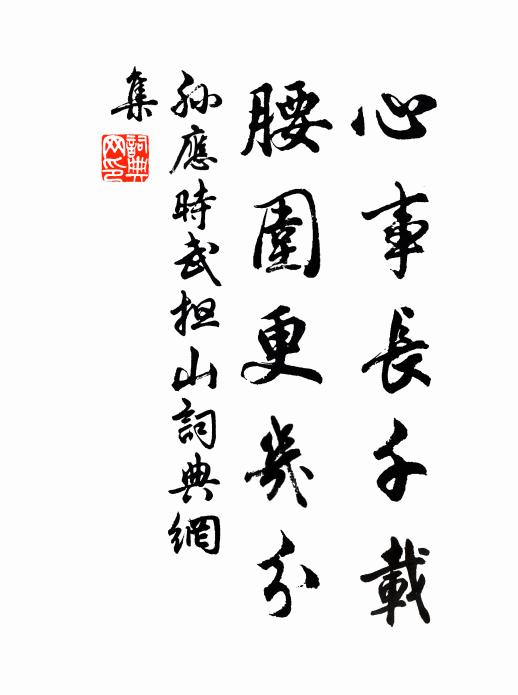 心事長千載
腰圍更幾分
孫應時武担山詞典網
集
詞典網印